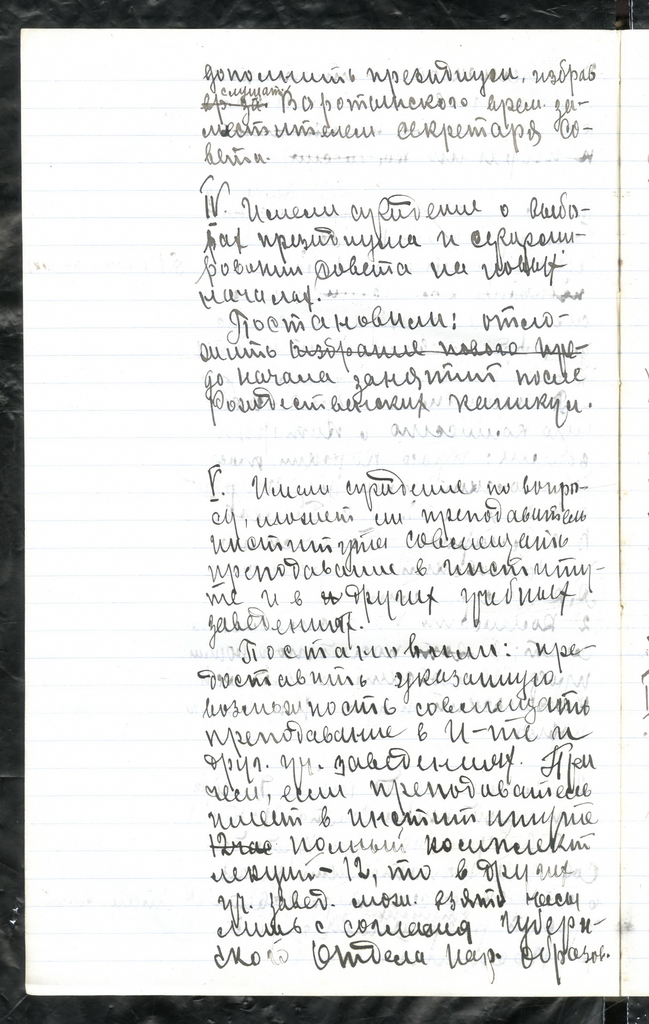 дополнить президиум, избрав
слушат.
вр. за Воротынского врем. за-
местителем секретаря Со-
вета.
IV. Имели суждение о выбо-
рах президиума и сформи-
ровании Совета на новых
началах.
Постановили: отло-
жить избрание нового пре-
до начала занятий после
Рождественских каникул.
V. Имели суждение по вопро-
су, может ли преподаватель
института совмещать
преподавание в институ-
те и в других учебных
заведениях.
Постановили: пре-
доставить указанную
возможность совмещать
преподавание в И-те и
друг. уч. заведениях. При
чем, если преподаватель
имеет в институте
12 час полный комплект
лекций - 12, то в других
уч. завед. мож. взять часы
лишь с согласия Губерн-
ского Отдела нар. образов.